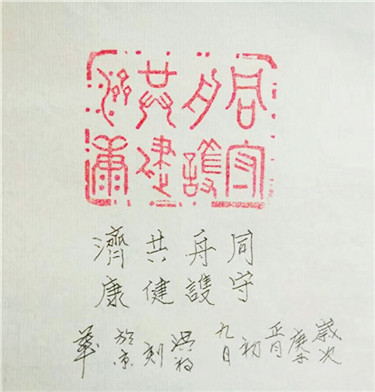 同舟共濟
守護健康
同舟共濟
守護健康
歲次庚子正月初九日刻於京華